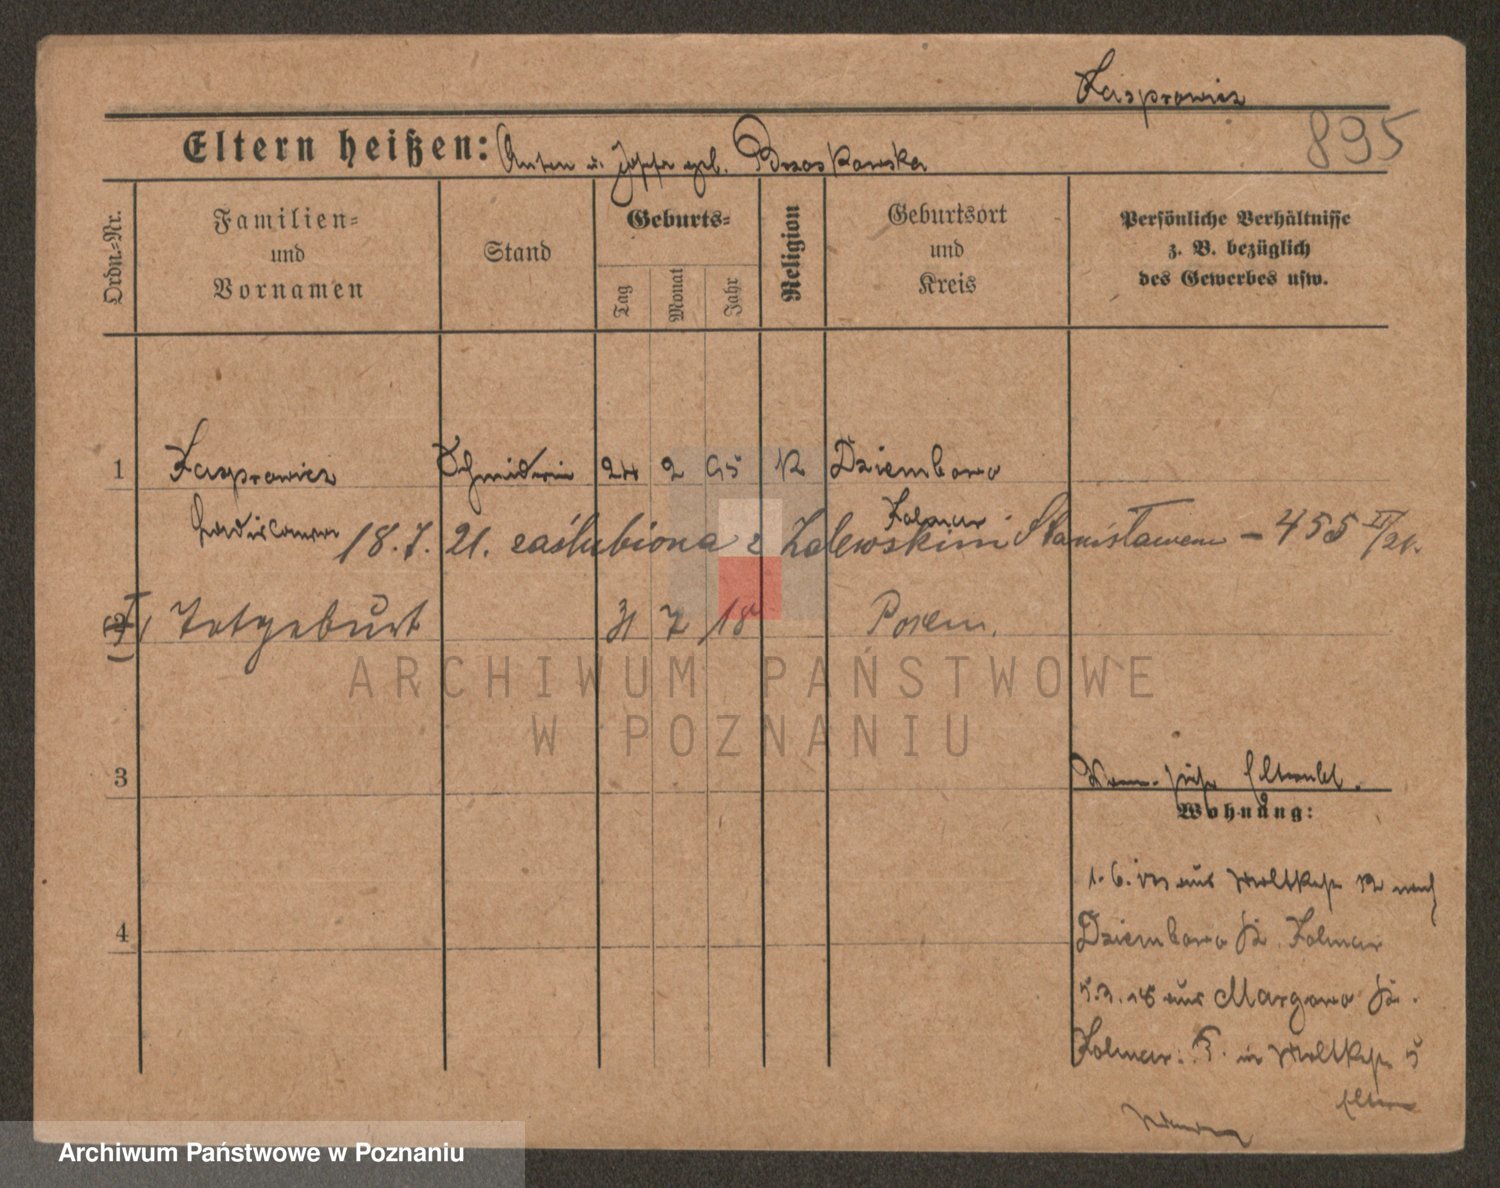 Kasprowicz
895
Eltern heißen: Anton u. Josefa geb. Brzoskowska
Ordn.-Nr.
Familien- und Vornamen
Stand
Geburts-
Tag
Monat
Jahr
Religion
Geburtsort und Kreis
Persönliche Verhältnisse
z. B. bezüglich
des Gewerbes usw.
1 Kasprowicz Schneiderin 24 2 95 K Dziembowo
Ladislawa Kolmar
18.7.21. zaślubiona z Zalewskim Stanisławem – 455 II/21.
2 Totgeburt 31 7 18 Posen.
3
4
ARCHIWUM PAŃSTWOWE
W POZNANIU
siehe Elternbl.
Wohnung:
1.6. aus Moltkestr 12 nach
Dziembowo Kr. Kolmar
5.3.18 aus Margowo Kr.
Kolmar: in Moltkestr 5
Eltern
Archiwum Państwowe w Poznaniu